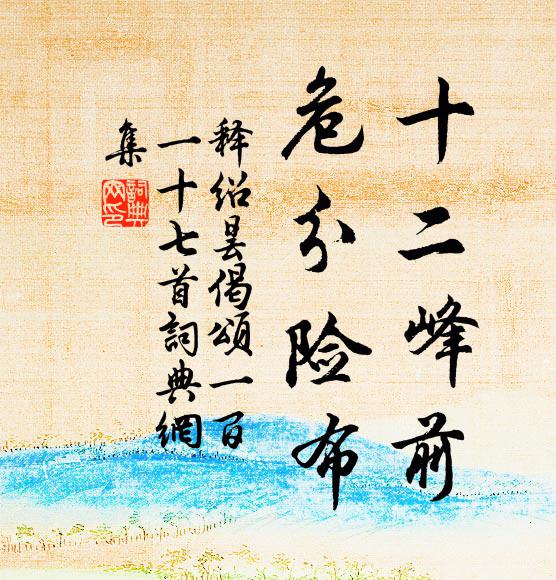 十二峰前
危分险布
释绍昙偈颂一百
一十七首詞典網
集
詞典網印